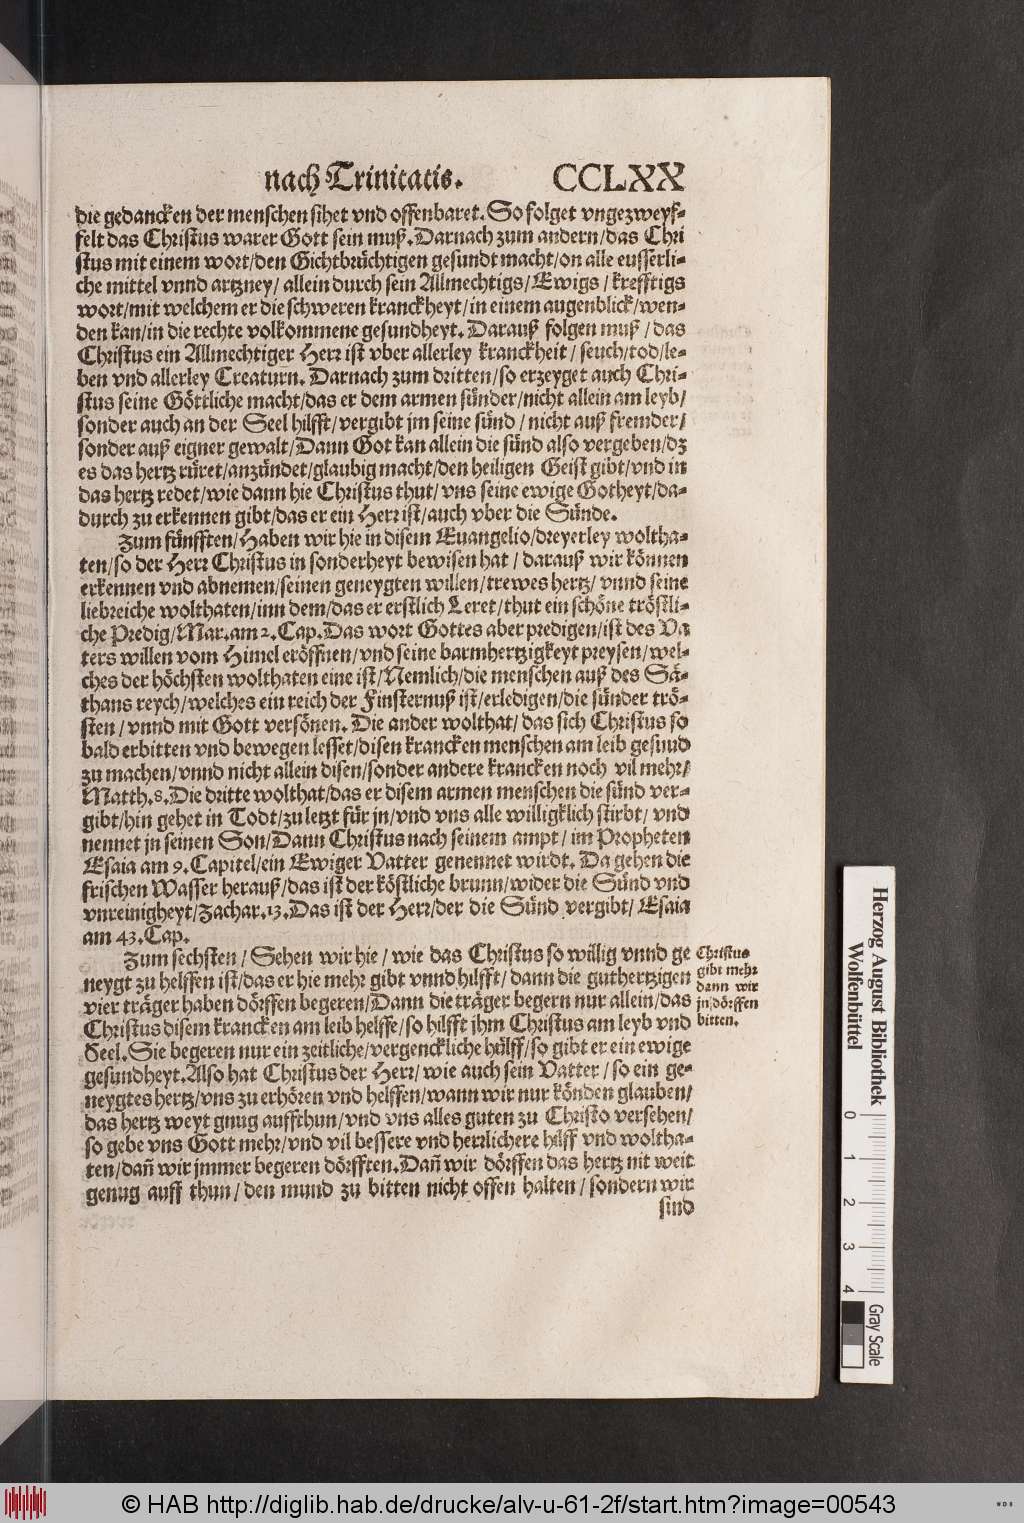 nach Trinitatis. CCLXX
die gedancken der menschen sihet vnd offenbaret. So folget vngezweyf-
felt das Christus warer Gott sein muß. Darnach zum andern/das Chri
stus mit einem wort/den Gichtbrüchtigen gesundt macht/on alle eusserli-
che mittel vnnd artzney/ allein durch sein Allmechtigs/Ewigs/ krefftigs
wort/mit welchem er die schweren kranckheyt/in einem augenblick/wen-
den kan/in die rechte volkommene gesundheyt. Darauß folgen muß/das
Christus ein Allmechtiger Herr ist vber allerley kranckheit/ seuch/tod/le-
ben vnd allerley Creaturn. Darnach zum dritten/so erzeyget auch Chri-
stus seine Göttliche macht/das er dem armen sünder/nicht allein am leyb/
sonder auch an der Seel hilfft/vergibt jm seine sünd/ nicht auß fremder/
sonder auß eigner gewalt/Dann Got kan allein die sünd also vergeben/dz
es das hertz rüret/anzündet/glaubig macht/den heiligen Geist gibt/vnd in
das hertz redet/wie dann hie Christus thut/ vns seine ewige Gotheyt/da-
durch zu erkennen gibt/das er ein Herr ist/auch vber die Sünde.
Zum fünfften/Haben wir hie in disem Euangelio/dreyerley woltha-
ten/so der Herr Christus in sonderheyt bewisen hat/ darauß wir können
erkennen vnd abnemen/seinen geneygten willen/trewes hertz/ vnnd seine
liebreiche wolthaten/inn dem/das er erstlich Leret/thut ein schöne tröstli-
che Predig/Mar.am 2.Cap.Das wort Gottes aber predigen/ist des Va
ters willen vom Himel eröffnen/vnd seine barmhertzigkeyt preysen/wel-
ches der höchsten wolthaten eine ist/Nemlich/die menschen auß des Sä-
thans reych/welches ein reich der Finsternuß ist/erledigen/die sünder trö-
sten/vnnd mit Gott versönen. Die ander wolthat/ das sich Christus so
bald erbitten vnd bewegen lesset/disen krancken menschen am leib gesund
zu machen/vnnd nicht allein disen/sonder andere krancken noch vil mehr/
Matth.8.Die dritte wolthat/das er disem armen menschen die sünd ver-
gibt/hin gehet in Todt/zu letzt für jn/vnd vns alle willigklich stirbt/ vnd
nennet jn seinen Son/Dann Christus nach seinem ampt/ im Propheten
Esaia am 9.Capitel/ein Ewiger Vatter genennet wirdt. Da gehen die
frischen Wasser herauß/das ist der köstliche brunn/wider die Sünd vnd
vnreinigheyt/Zachar.13.Das ist der Herr/der die Sünd vergibt/ Esaia
am 43.Cap.
Zum sechsten/ Sehen wir hie/ wie das Christus so willig vnnd ge
neygt zu helffen ist/das er hie mehr gibt vnnd hilfft/ dann die guthertzigen
vier träger haben dörffen begeren/Dann die träger begern nur allein/das
Christus disem krancken am leib helffe/so hilfft jhm Christus am leyb vnd
Seel.Sie begeren nur ein zeitliche/vergenckliche hülff/so gibt er ein ewige
gesundheyt.Also hat Christus der Herr/wie auch sein Vatter/so ein ge-
neygtes hertz/vns zu erhören vnd helffen/wann wir nur könden glauben/
das hertz weyt gnug auffthun/vnd vns alles guten zu Christo versehen/
so gebe vns Gott mehr/vnd vil bessere vnd herrlichere hilff vnd woltha-
ten/dañ wir jmmer begeren dörfften.Dañ wir dörffen das hertz nit weit
genug auff thun/den mund zu bitten nicht offen halten/sondern wir
sind
Christus
gibt mehr
dann wir
jn/dörffen
bitten.
Herzog August Bibliothek
Wolfenbüttel
0 1 2 3 4
Gray Scale
© HAB http://diglib.hab.de/drucke/alv-u-61-2f/start.htm?image=00543